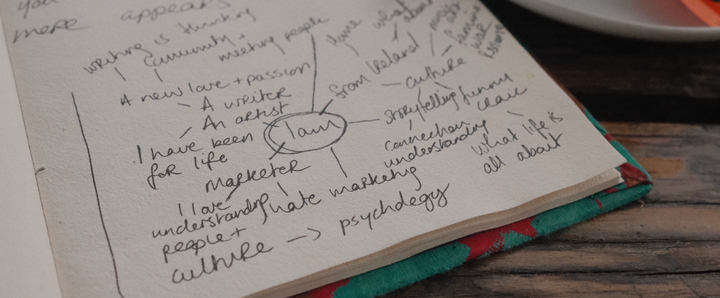 you
more appears
writing is thinking
Community +
meeting people
A new love + passion
A writer
An artist
I have been
for life
I am
from Ireland
culture
storytelling funny
craic
connection
understanding
what life is
all about
Marketer
I love
understanding
people +
culture → psychology
hate marketing